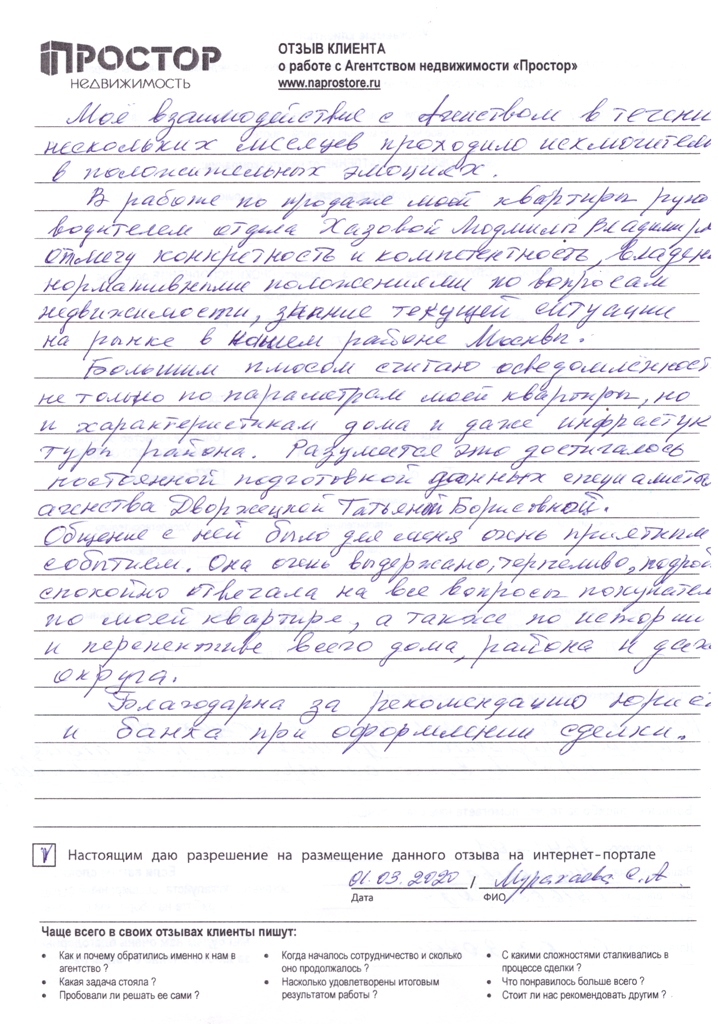 ПРОСТОР
НЕДВИЖИМОСТЬ
ОТЗЫВ КЛИЕНТА
о работе с Агентством недвижимости «Простор»
www.naprostore.ru
Моё взаимодействие с Агенством в течени
нескольких месяцев проходило исключитель
в положительных эмоциях.
В работе по продаже моей квартиры руко
водителем отдела Хазовой Людмилы Владимир
отмечу конкретность и компетентность, владен
нормативными положениями по вопросам
недвижимости, знание текущей ситуации
на рынке в нашем районе Москвы.
Большим плюсом считаю осведомлённост
не только по параметрам моей квартиры, но
и характеристикам дома и даже инфрастук
туры района. Разумеется это достигалось
постоянной подготовкой данных специалиста
агенства Дворжецкой Татьяной Борисовной.
Общение с ней было для меня очень приятным
событием. Она очень выдержано, терпеливо, подроб
спокойно отвечала на все вопросы покупател
по моей квартире, а также по истории
и перспективе всего дома, района и даж
округа.
Благодарна за рекомендацию юрис
и банка при оформлении сделки.
V Настоящим даю разрешение на размещение данного отзыва на интернет-портале
01.03.2020 / С.А
Дата ФИО
Чаще всего в своих отзывах клиенты пишут:
• Как и почему обратились именно к нам в агентство ?
• Какая задача стояла ?
• Пробовали ли решать ее сами ?
• Когда началось сотрудничество и сколько оно продолжалось ?
• Насколько удовлетворены итоговым результатом работы ?
• С какими сложностями сталкивались в процессе сделки ?
• Что понравилось больше всего ?
• Стоит ли нас рекомендовать другим ?